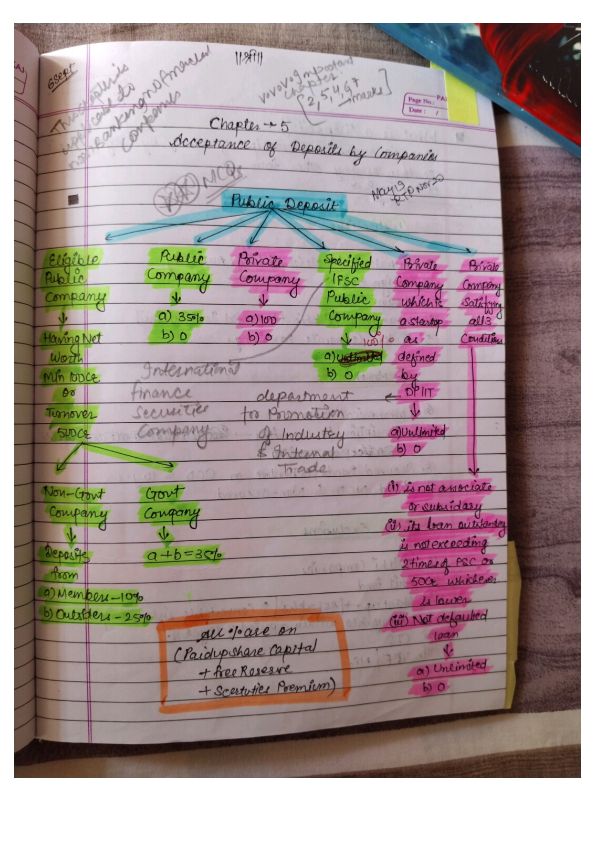 ॥श्री॥
6 Sept
This chapter is
applicable to
non Banking non financial
companies
v.v.v.v. Important
chapter
[2, 5, 4, 6, 7
marks]
Page No.:
Date: /
Chapter - 5
Acceptance of Deposits by Companies
MCQs
May 19
RTP Nov 20
Public Deposit
Eligible
Public
Company
Having Net
Worth
Min 100 Cr
or
Turnover
500 Cr
Non-Govt
Company
Deposits
from
a) Members - 10%
b) Outsiders - 25%
Govt
Company
a+b = 35%
Public
Company
a) 35%
b) 0
Private
Company
a) 100
b) 0
Specified
IFSC
Public
Company
100%
a)
b) 0
International
finance
Securities
Company
Private
Company
which is
a startup
as
defined
by
DPIIT
a) Unlimited
b) 0
department
for Promotion
of Industry
& Internal
Trade
Private
Company
Satisfying
all 3
Conditions
(i) is not associate
or subsidary
(ii) its loan outstanding
is not exceeding
2 times of PSC or
50 Cr whichever
is lower
(iii) Not defaulted
loan
a) Unlimited
b) 0
All % are on
(Paid up share Capital
+ free Reserve
+ Scertuties Premium)